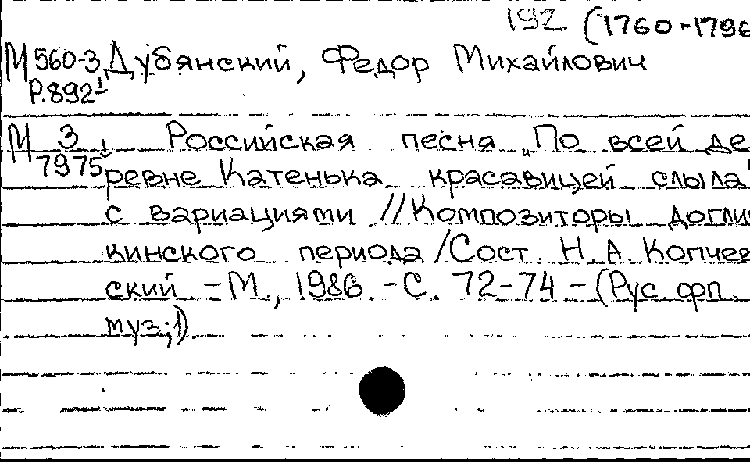 192 (1760-1796
М 560-3 Дубянский, Федор Михайлович
Р.892-1
М 3 Российская песня „По всей де-
7975 ревне Катенька красавицей слыла"
с вариациями // Композиторы догли
кинского периода / Сост. Н. А. Копчев
ский. - М., 1986. - С. 72-74 - (Рус. фп.
муз; 1).